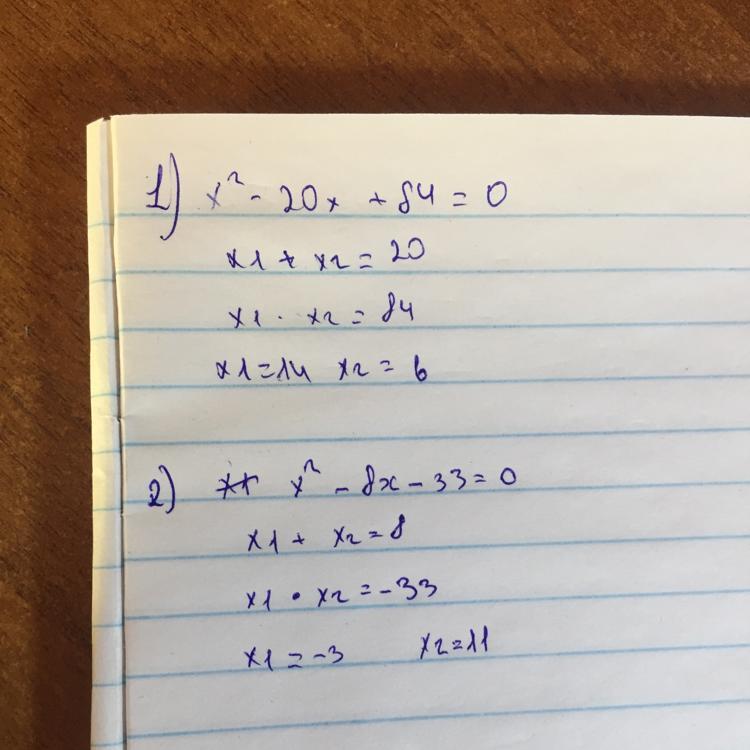 1) x² - 20x + 84 = 0
x1 + x2 = 20
x1 · x2 = 84
x1=14 x2 = 6
2) x² - 8x - 33 = 0
x1 + x2 = 8
x1 · x2 = -33
x1 = -3 x2 = 11